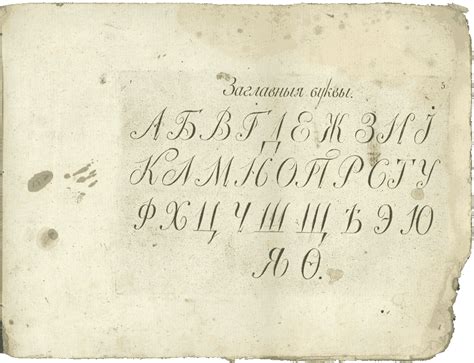 Заглавныя буквы.
А Б В Г Д Е Ж З И І
К Л М Н О П Р С Т У
Ф Х Ц Ч Ш Щ Ѣ Э Ю
Я Ѳ.